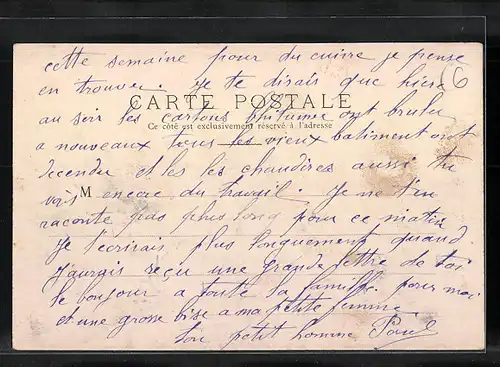 cette semaine pour du cuivre je pense
6
en trouver. Je te dirais que hier
CARTE POSTALE
au soir les cartons bitumes ont brulu
Ce côté est exclusivement réservé à l'adresse
a nouveaux tous les vieux batiment ont
decendu et les les chaudires aussi tu
vois M encore du travail. Je ne t'en
raconte pas plus long pour ce matin
Je t'écrirais plus longuement quand
J'aurais reçu une grande lettre de toi
le bonjour a toute la famille pour moi
et une grosse bise a ma petite femme
ton petit homme Paul